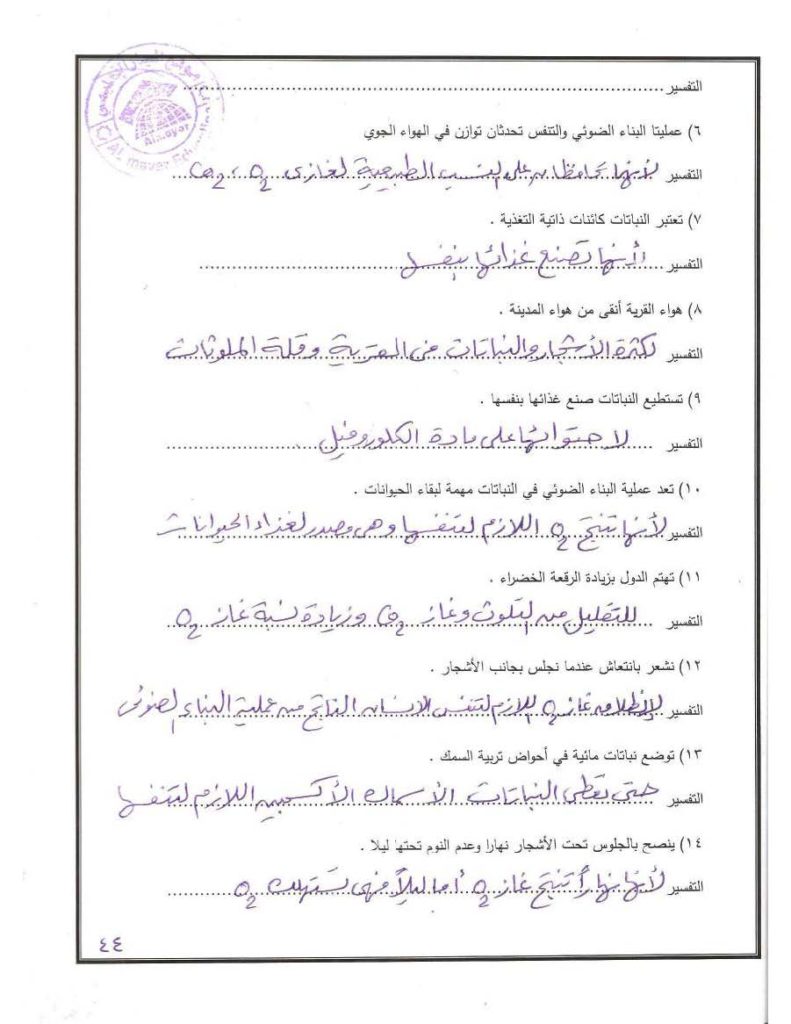 التفسير
٦) عمليتا البناء الضوئي والتنفس تحدثان توازن في الهواء الجوي
التفسير لأنهما تحافظان على النسب الطبيعية لغازى O2 ، Co2
٧) تعتبر النباتات كائنات ذاتية التغذية .
التفسير لأنها تصنع غذائها بنفسها
٨) هواء القرية أنقى من هواء المدينة .
التفسير لكثرة الأشجار والنباتات فى القرية وقلة الملوثات
٩) تستطيع النباتات صنع غذائها بنفسها .
التفسير لاحتوائها على مادة الكلوروفيل
١٠) تعد عملية البناء الضوئي في النباتات مهمة لبقاء الحيوانات .
التفسير لأنها تنتج O2 اللازم لتنفسها وهى مصدر لغذاء الحيوانات
١١) تهتم الدول بزيادة الرقعة الخضراء .
التفسير للتقليل من التلوث وغاز Co2 وزيادة نسبة غاز O2
١٢) نشعر بانتعاش عندما نجلس بجانب الأشجار .
التفسير لإنطلاق غاز O2 اللازم لتنفس الانسان الناتج من عملية البناء الضوئى
١٣) توضع نباتات مائية في أحواض تربية السمك .
التفسير حتى تعطى النباتات الأسماك الأكسجين اللازم لتنفسها
١٤) ينصح بالجلوس تحت الأشجار نهارا وعدم النوم تحتها ليلا .
التفسير لأنها نهاراً تنتج غاز O2 أما ليلاً فهى تستهلك O2
٤٤
Almayar